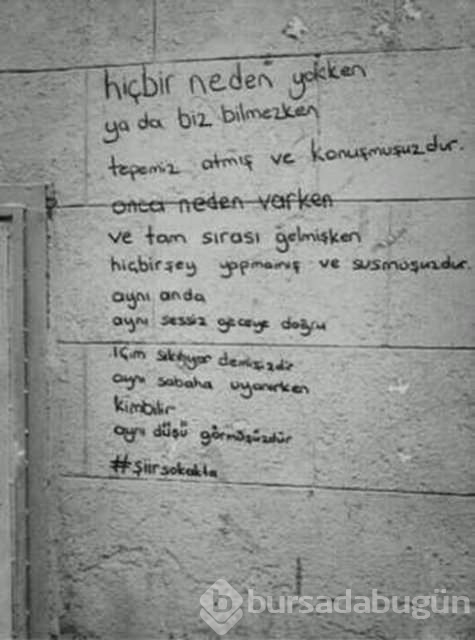 hiçbir neden yokken
ya da biz bilmezken
tepemiz atmış ve konuşmuşuzdur.
onca neden varken
ve tam sırası gelmişken
hiçbirşey yapmamış ve susmuşuzdur.
aynı anda
aynı sessiz geceye doğru
içim sıkılıyor demişizdir
aynı sabaha uyanırken
kimbilir
aynı düşü görmüşüzdür
#şiirsokakta
bursadabugün